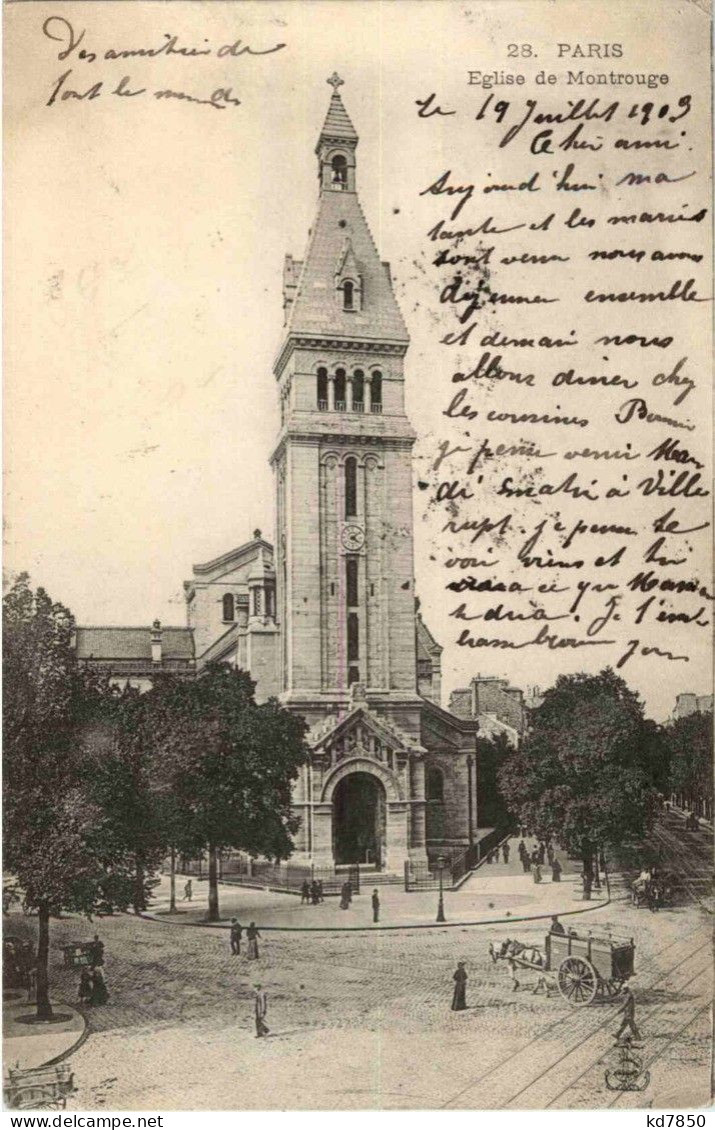 Des amitiés de
tout le monde
28. PARIS
Eglise de Montrouge
Le 19 Juillet 1903
Cher ami.
Aujourd'hui ma
tante et les mariés
sont venu nous avons
déjeuner ensemble
et demain nous
allons diner chez
les cousines
je pense venir Mar
di matin à Ville
rupt. je pense te
voir viens et tu
ce que Maman
te dira. Je t'em
brasse bien fort
kd7850